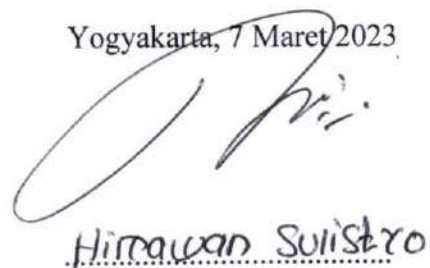 Yogyakarta, 7 Maret 2023
Himawan Sulistyo